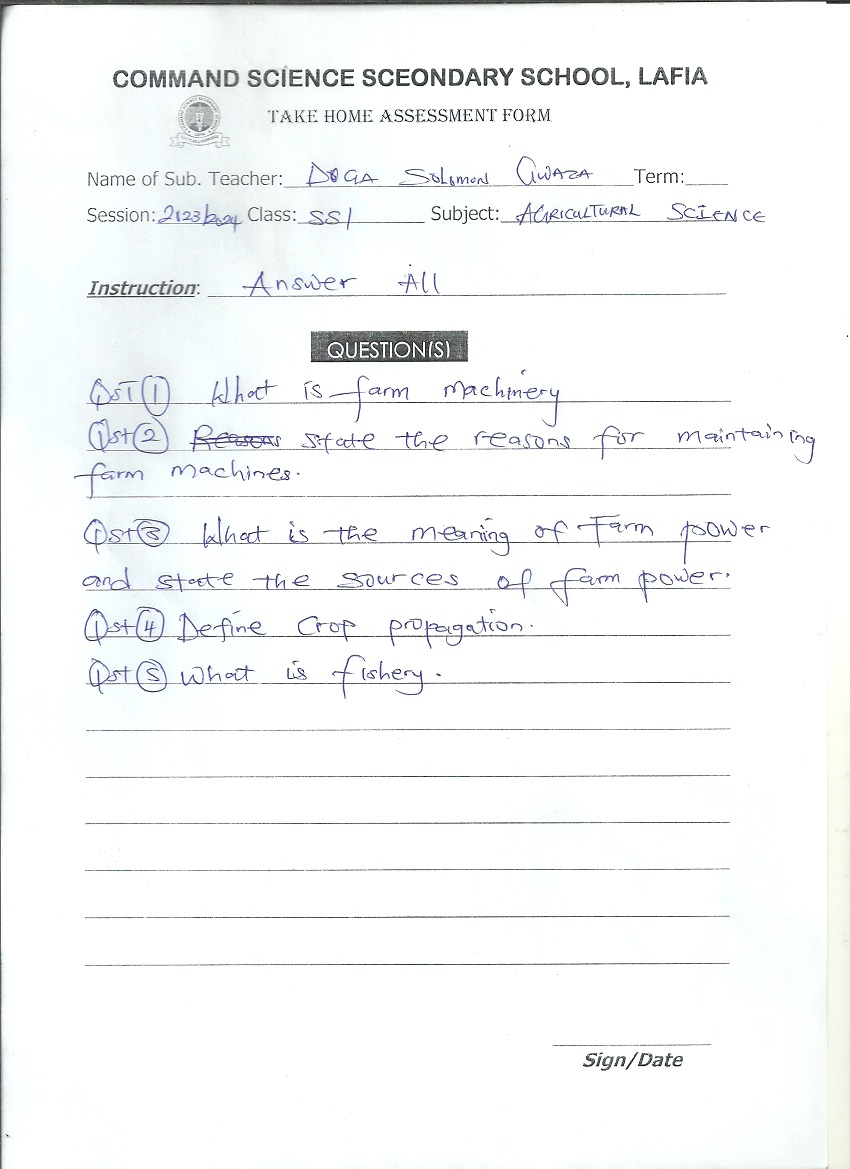 COMMAND SCIENCE SCEONDARY SCHOOL, LAFIA
TAKE HOME ASSESSMENT FORM
Name of Sub. Teacher: DOGA Solomon GWAZA Term:
Session: 2123/2024 Class: SS1 Subject: AGRICULTURAL SCIENCE
Instruction: Answer All
QUESTION(S)
QST 1 What is farm machinery
Qst 2 Reasons state the reasons for maintaining
farm machines.
Qst 3 What is the meaning of Farm power
and state the sources of farm power.
Qst 4 Define Crop propagation.
Qst 5 What is fishery.
Sign/Date